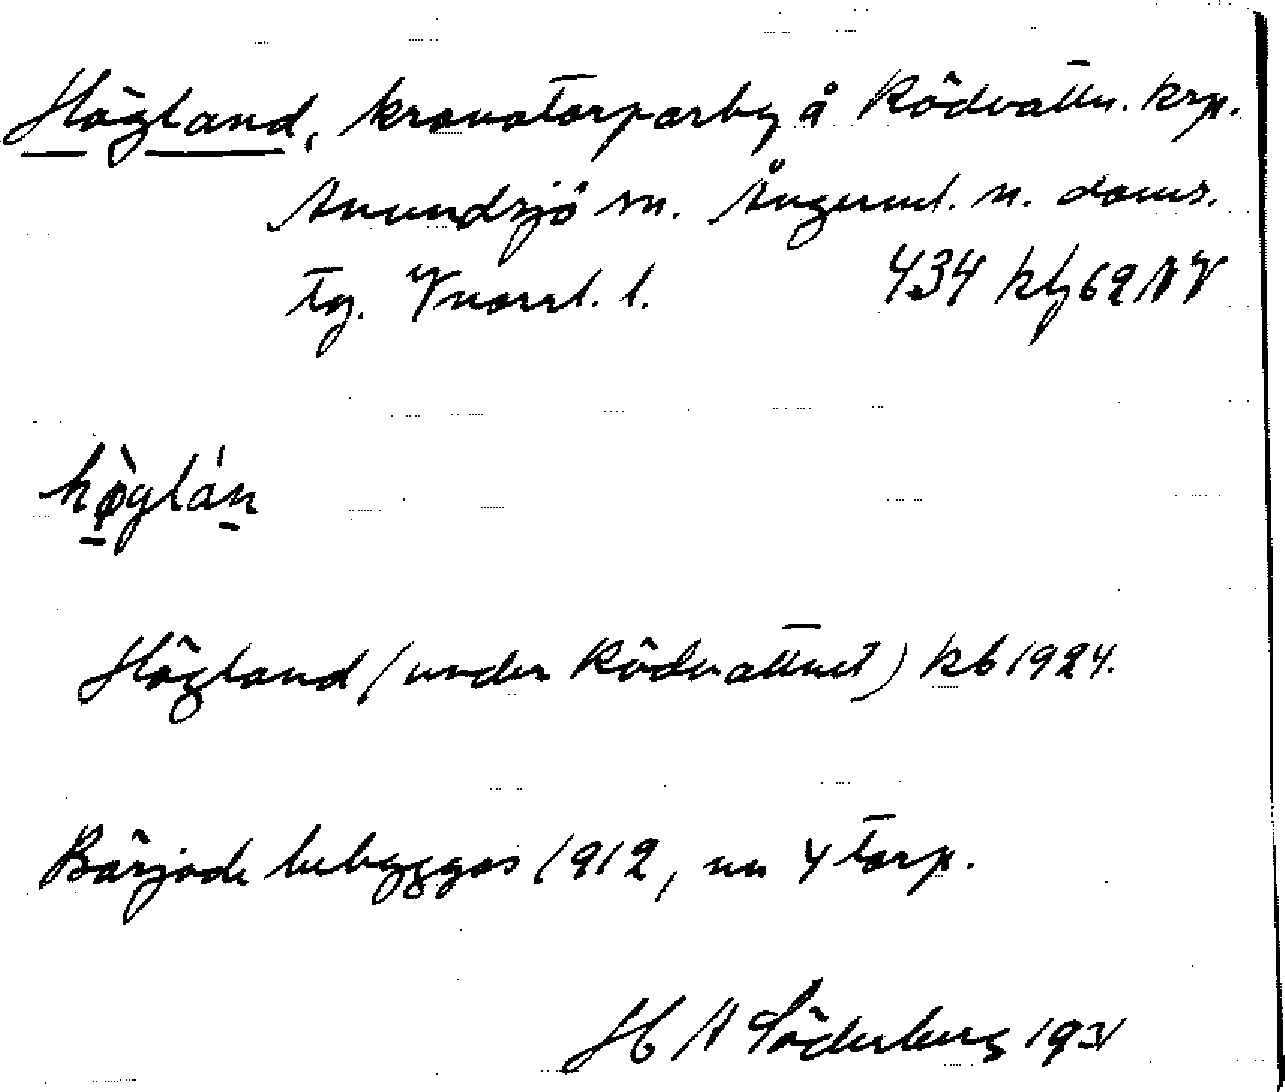 Högland, kronotorparby å Rödvattn. krp.
Anundsjö sn. Ångerml. n. doms.
tg. Vnorrl. l. 434 kbl 62 NV
hø̀glán
Högland (under Rödvattnet) kb 1924.
Började bebyggas 1912, nu 4 torp.
H A Söderberg 1931